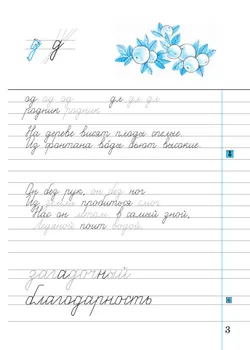 д д
од од од дл дл дл
родник родник
На дереве висят плоды спелые.
Из фонтана воды бьют высокие.
Он без рук, он без ног
Из земли пробиться смог.
Нас он летом, в самый зной,
Ледяной поит водой.
загадочный
благодарность
3